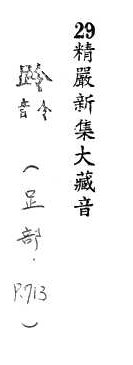 29精嚴新集大藏音
跉令音(足部.P.713)